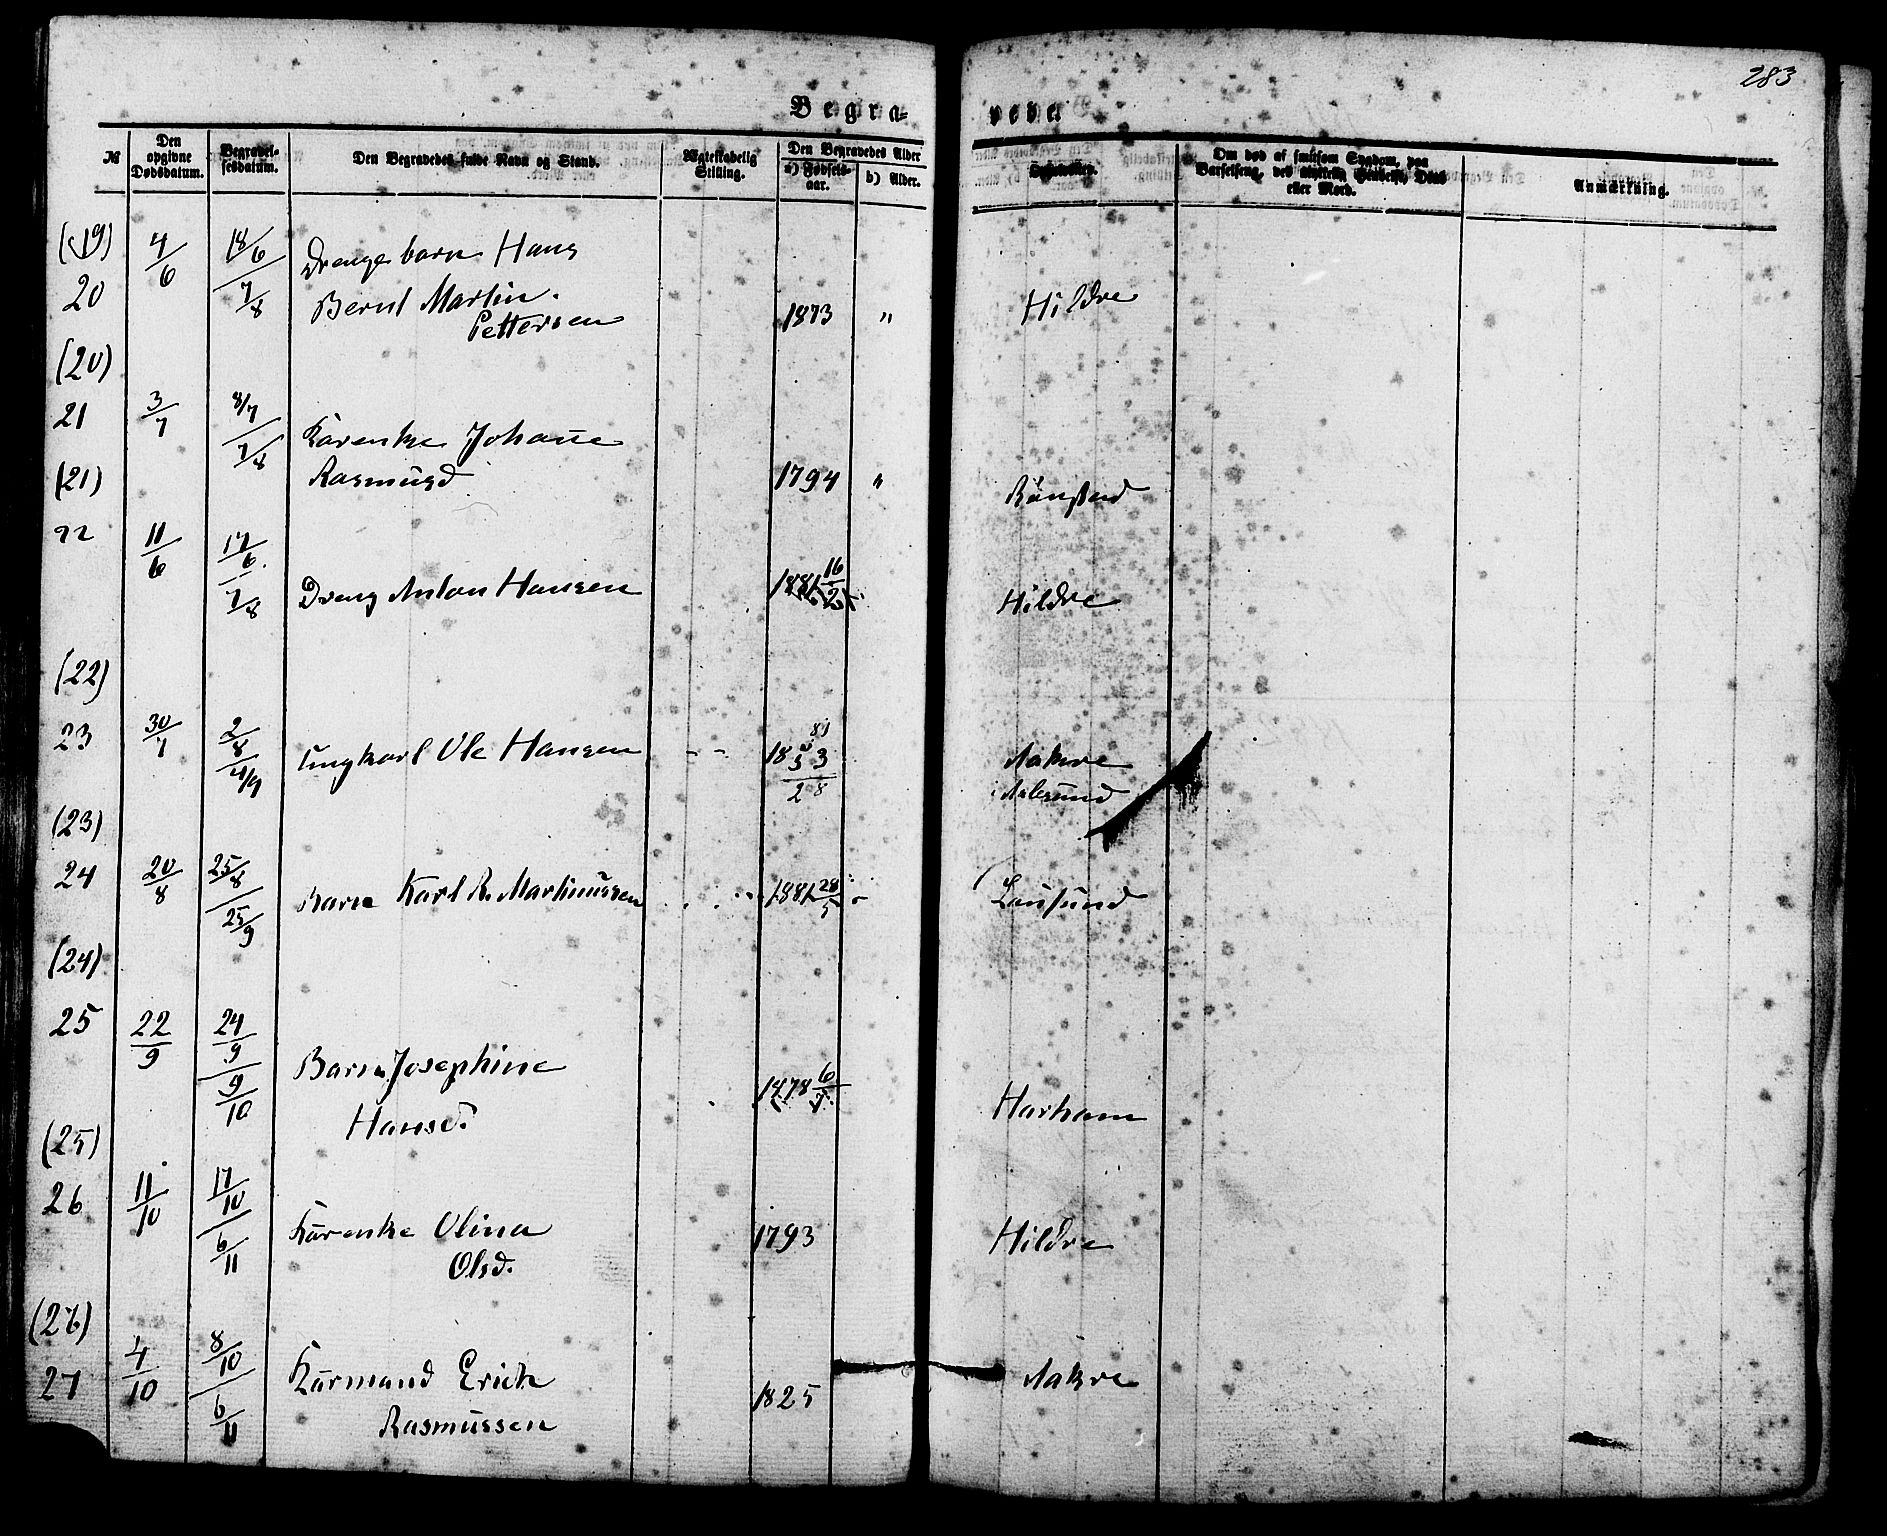 283
Begra-
vede.
№
Den opgivne Dødsdatum.
Begravelsesdatum.
Den Begravedes fulde Navn og Stand.
Ægteskabelig Stilling.
Den Begravedes Alder
a) Fødselsaar.
b) Alder.
Om død af smitsom Sygdom, paa
Barselseng, ved ulykkelig Hændelse, Drab
eller Mord.
Anmærkning.
(19) 4/6 18/6 Drengebarn Hans
20 7/8 Bernt Martin Hildre
Pettersen 1873 "
(20)
21 3/7 8/7
7/8 Kårenke Johane
(21) Rasmusd 1794 "
22 11/6 17/6
7/8 Dreng Anton Hansen 1881 16/2 Hildre
(22)
23 30/7 2/8 Ungkarl Ole Hansen - - 1853 Aakre
4/9 28
81
(23)
24 20/8 25/8 Barn Karl R. Martinussen 1881 28/5 Lausund
25/9
(24)
25 22/9 24/9
9/10 Barn Josephine 1878 6/7 Harham
(25) Hansd.
26 11/10 17/10
6/11 Kårenke Olina 1793 Hildre
Olsd.
(26)
27 4/10 8/10 Kårmand Erick 1825 Aakre
6/11 Rasmussen